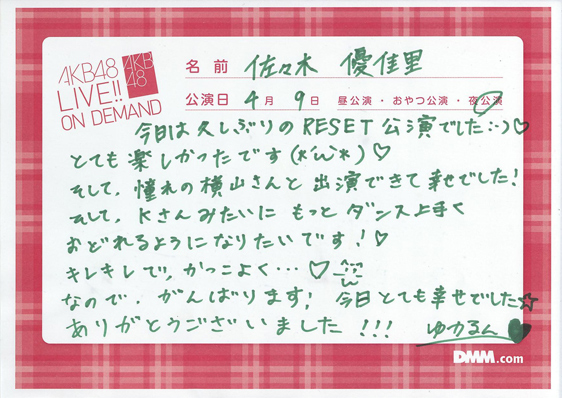 AKB48
LIVE!!
ON DEMAND
AKB
48
名前 佐々木 優佳里
公演日 4月 9日 昼公演・おやつ公演・夜公演
今日は久しぶりのRESET公演でした:-)♡
とても楽しかったです(*´ω`*)♡
そして、憧れの横山さんと出演できて幸せでした!
そして、Kさんみたいにもっとダンス上手く
おどれるようになりたいです!♡
キレキレで、かっこよく…♡
なので、がんばります! 今日とても幸せでした☆
ありがとうございました!!! ゆかるん♥
DMM.com